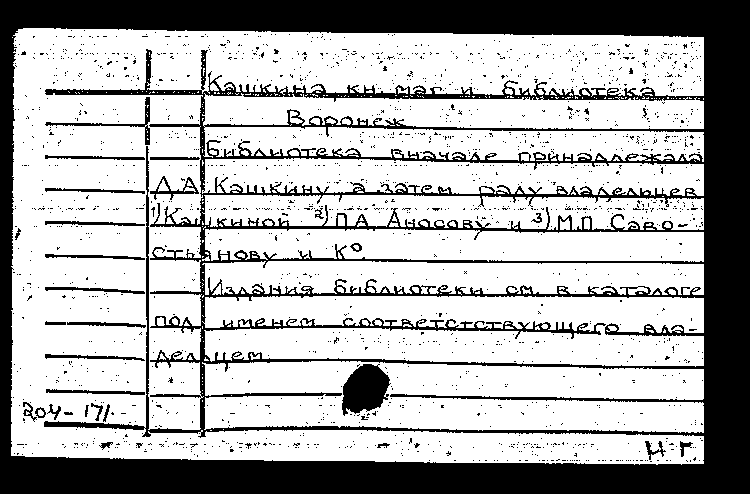 Кашкина, кн. маг. и библиотека
Воронеж
Библиотека вначале принадлежала
Д.А. Кашкину, а затем ряду владельцев
1) Кашкиной 2) П.А. Аносову и 3) М.П. Саво-
стьянову и К°.
Издания библиотеки см. в каталоге
под именем соответствующего вла-
дельцем.
204-171.
Н. г.